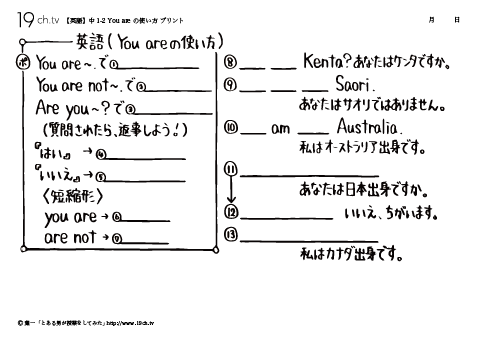 19ch.tv 【英語】中1-2 You are の使い方 プリント 月 日
英語(You areの使い方)
ポ You are ~. で①
You are not ~. で②
Are you ~? で③
(質問されたら、返事しよう!)
『はい』 → ④
『いいえ』 → ⑤
〈短縮形〉
you are → ⑥
are not → ⑦
⑧ ___ ___ Kenta? あなたはケンタですか。
⑨ ___ ___ ___ Saori.
あなたはサオリではありません。
⑩ ___ am ___ Australia.
私はオーストラリア出身です。
⑪
あなたは日本出身ですか。
⑫ いいえ、ちがいます。
⑬
私はカナダ出身です。
© 葉一「とある男が授業をしてみた」http://www.19ch.tv